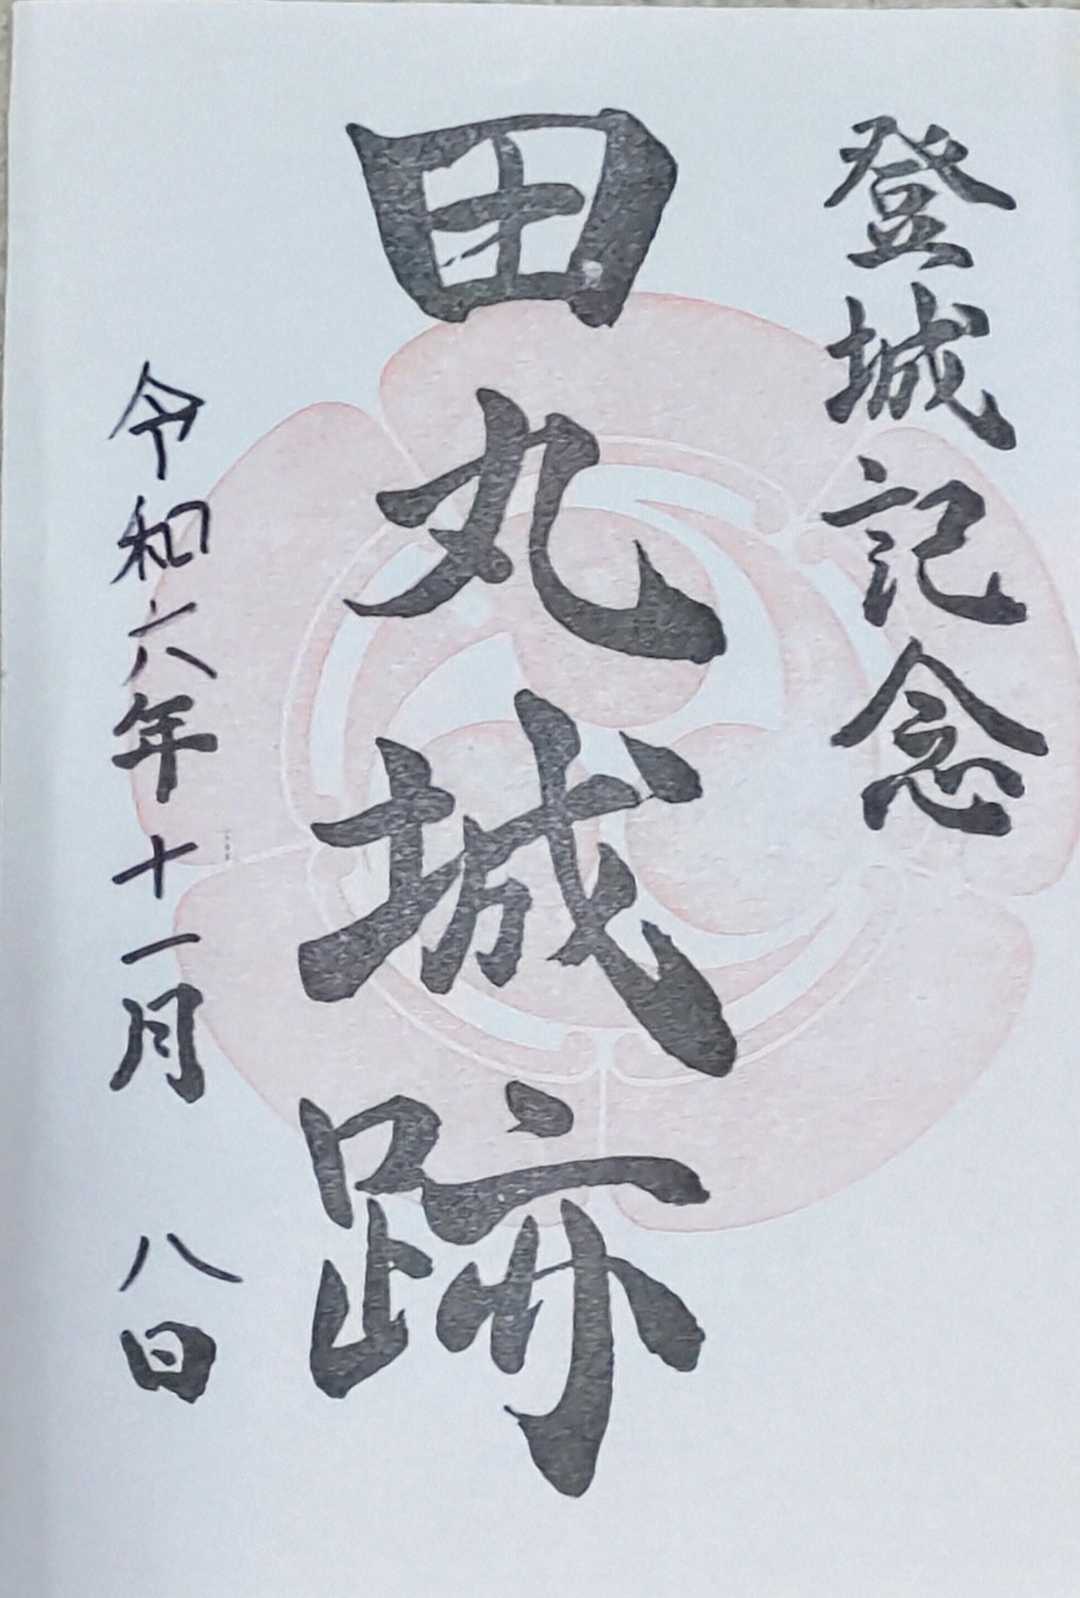 登城記念
田丸城跡
令和六年十一月 八日